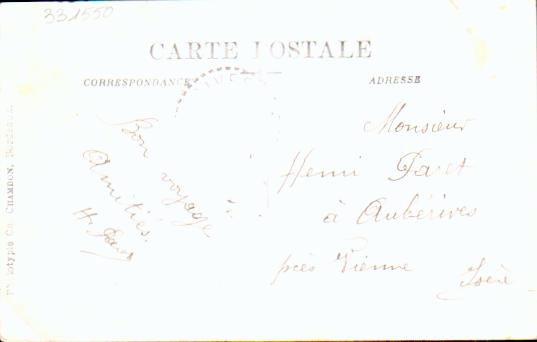 331550
CARTE POSTALE
CORRESPONDANCE
ADRESSE
Bon voyage
Amitiés.
Monsieur
Henri Paret
à Aubérives
près Vienne
Isère
Phototypie Ch. CHAMBON, Bordeaux.